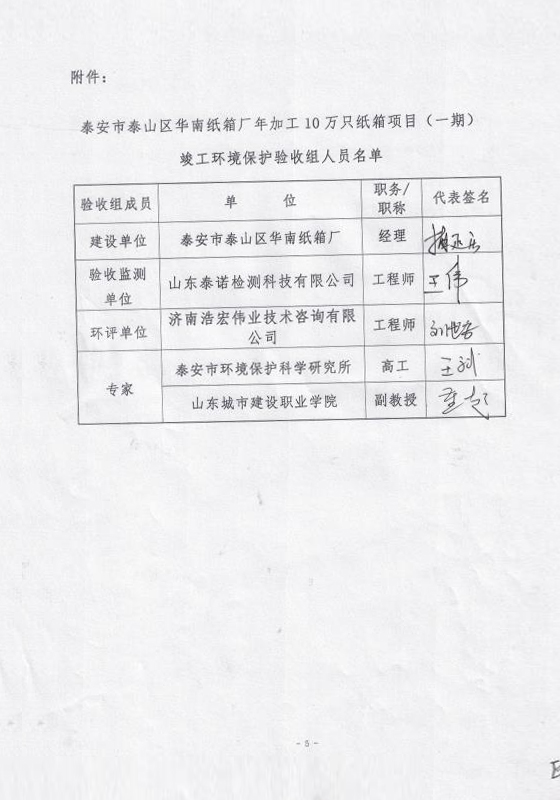 附件：
泰安市泰山区华南纸箱厂年加工10万只纸箱项目（一期）
竣工环境保护验收组人员名单
验收组成员 单 位 职务/职称 代表签名
建设单位 泰安市泰山区华南纸箱厂 经理
验收监测单位 山东泰诺检测科技有限公司 工程师 王伟
环评单位 济南浩宏伟业技术咨询有限公司 工程师
专家 泰安市环境保护科学研究所 高工 王斌
山东城市建设职业学院 副教授
- 5 -